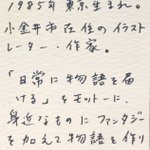 1985年東京生まれ。
小金井市在住のイラスト
レーター・作家。
「日常に物語を届
ける」をモットーに、
身近なものにファンタジー
を加えて物語を作り